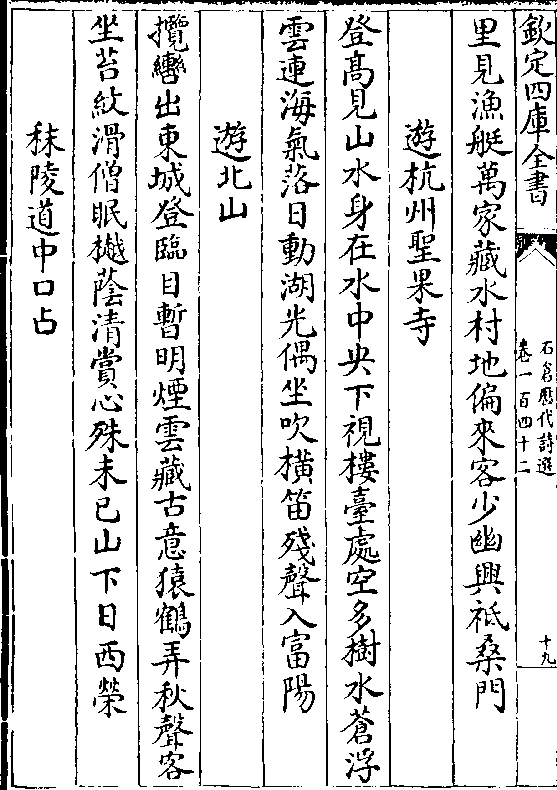 欽定四庫全書
石倉歷代詩選
卷一百四十二
十九
里見漁艇萬家藏水村地偏來客少幽興袛桑門
遊杭州聖果寺
登髙見山水身在水中央下視樓臺處空多樹水蒼浮
雲連海氣落日動湖光偶坐吹横笛殘聲入富陽
遊北山
攬轡出東城登臨目暫明煙雲藏古意猿鶴弄秋聲客
坐苔紋滑僧眠樾蔭清賞心殊未已山下日西榮
秣陵道中口占